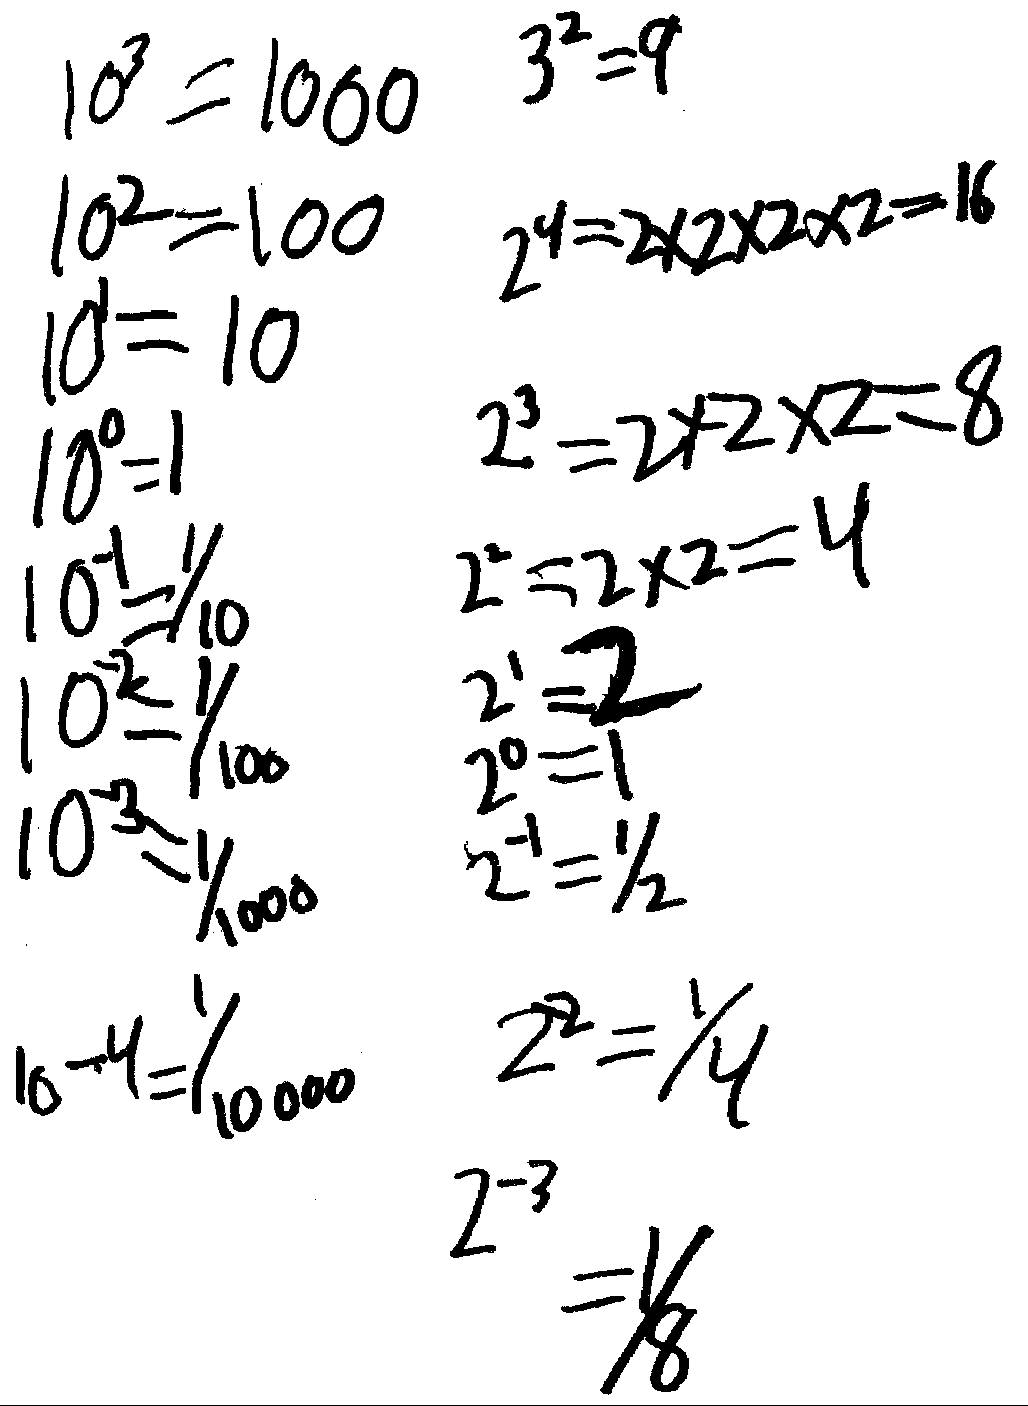 10³ = 1000
10² = 100
10¹ = 10
10⁰ = 1
10⁻¹ = 1/10
10⁻² = 1/100
10⁻³ = 1/1000
10⁻⁴ = 1/10000
3² = 9
2⁴ = 2x2x2x2 = 16
2³ = 2x2x2 = 8
2² = 2x2 = 4
2¹ = 2
2⁰ = 1
2⁻¹ = 1/2
2⁻² = 1/4
2⁻³
= 1/8